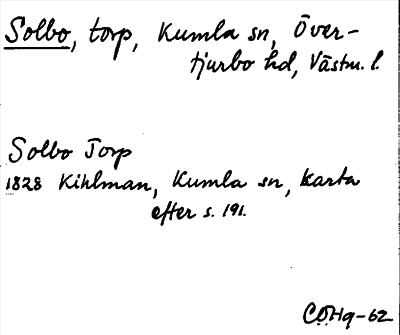 Solbo, torp, Kumla sn, Över-
tjurbo hd, Västm. l.
Solbo Torp
1828 Kihlman, Kumla sn, karta
efter s. 191.
CÖHq-62